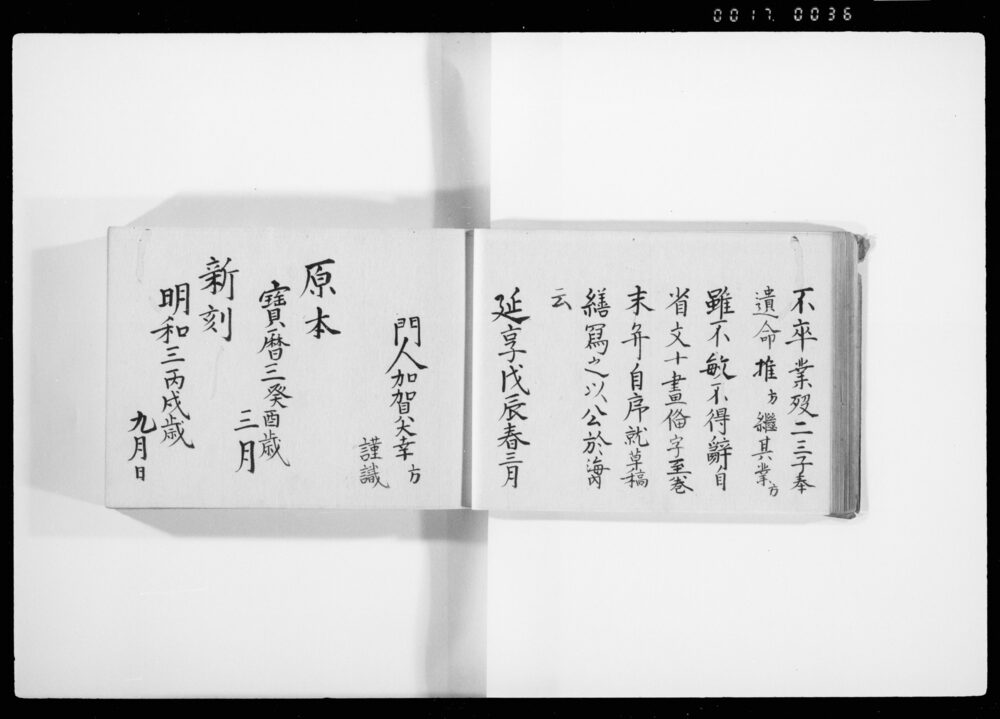 0017 0036
不卒業歿二三子奉
遺命推方継其業方
雖不敏不得辭自
省文十畫俗字至卷
末并自序就草稿
繕寫之以公於海內
云
延享戊辰春三月
門人加賀大幸方
謹識
原本
寶曆三癸酉歲
三月
新刻
明和三丙戌歲
九月日